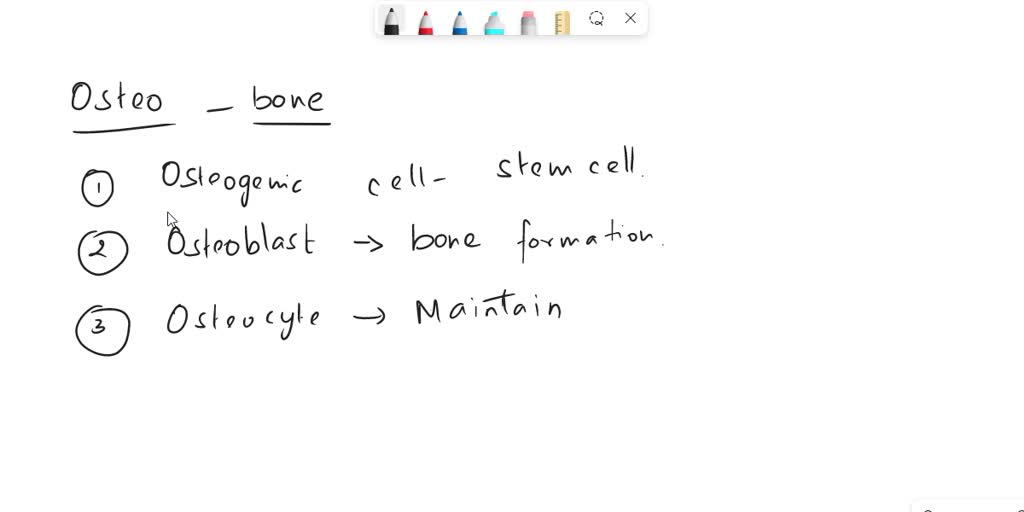 Osteo - bone
1 Osteogenic cell - stem cell.
2 Osteoblast → bone formation.
3 Osteocyte → Maintain